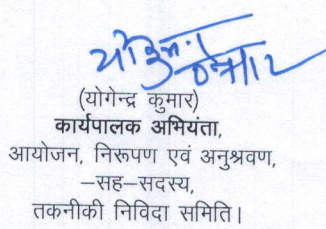 योगेन्द्र कुमार
(योगेन्द्र कुमार)
कार्यपालक अभियंता,
आयोजन, निरूपण एवं अनुश्रवण,
–सह–सदस्य,
तकनीकी निविदा समिति।